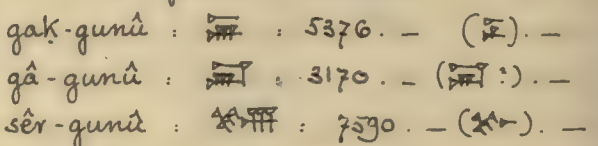 gaḳ-gunû : : 5376. — ( ). —
gâ-gunû : : 3170. — ( ?). —
sêr-gunû : : 7590. — ( ). —